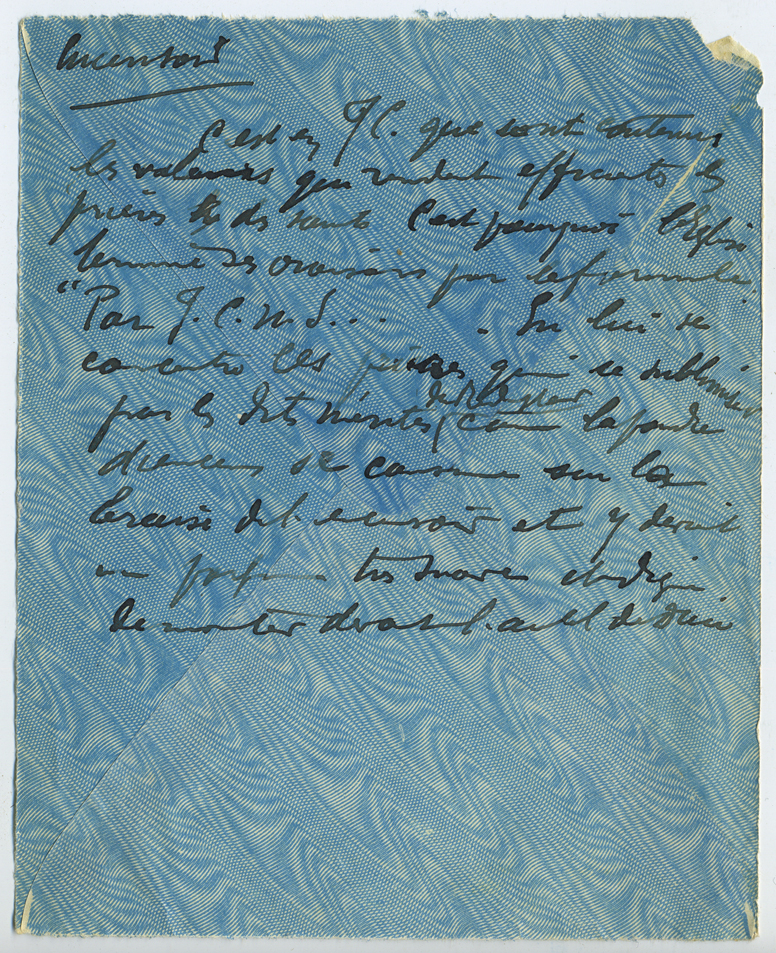 Encensoir
C'est en J.C. que sont contenus
les valeurs qui rendent efficientes les
prières des saints C'est pourquoi l'Eglise
termine ses oraisons par la formule
"Par J.C.N.S... . En lui se
concentre les prières qui se subliment
de Rédempteur
par les dits mérites comme la poudre
d'encens se consume sur la
braise de l'encensoir et y devient
un parfum très suave et digne
de monter devant l'autel de Dieu